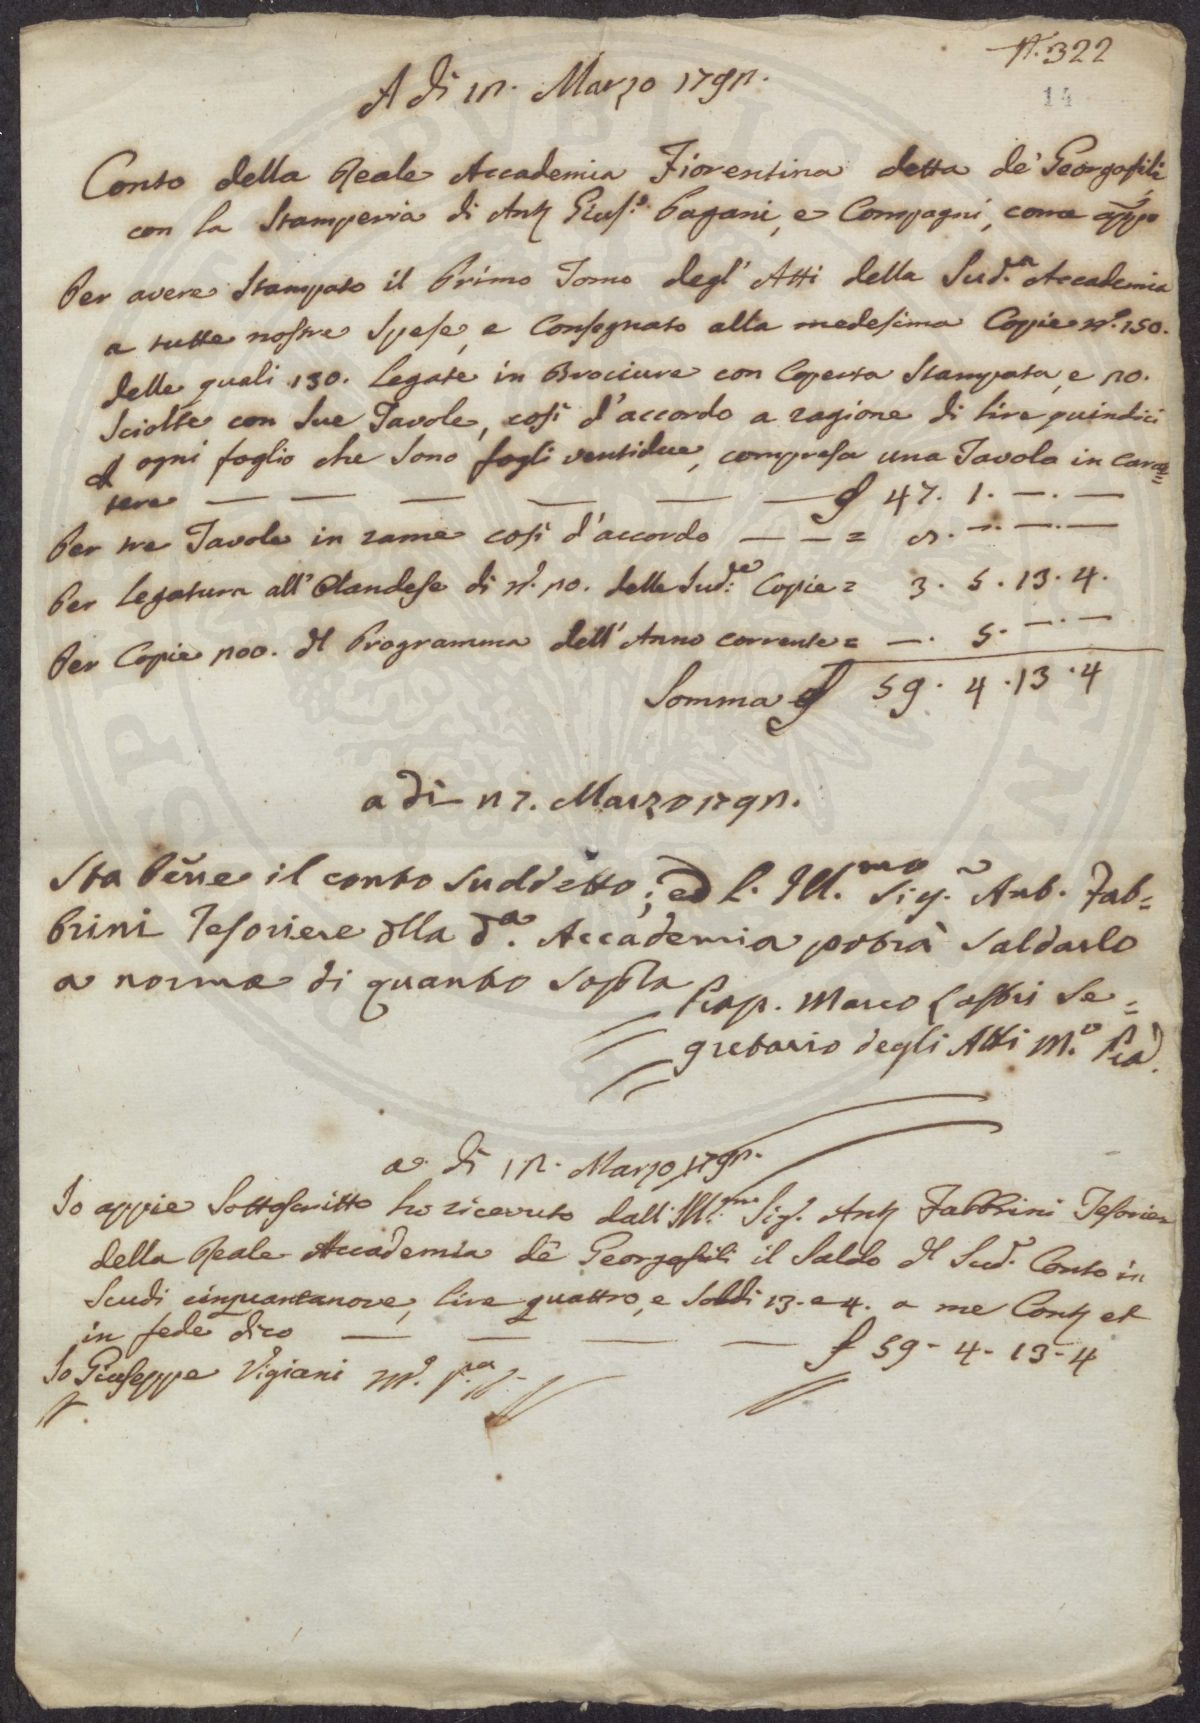 N.° 322
14
A dì 12. Marzo 1792.
Conto della Reale Accademia Fiorentina detta de' Georgofili
con la Stamperia di Ant.° Gius.e Pagani, e Compagni, come app.o
Per avere Stampato il Primo Tomo degl' Atti della Sud.a Accademia
a tutte nostre Spese, e Consegnato alla medesima Copie n.° 150.
delle quali 130. legate in Brociure con Coperta Stampata, e 20.
Sciolte con Sue Tavole, così d'accordo a ragione di lire quindici
ogni foglio che Sono fogli ventidue, compresa una Tavola in Carat=
tere — — — — — — 47. 1. —. —
Per tre Tavole in rame così d'accordo — — = 8. —. —. —
Per legatura all' Olandese di n.° 20. delle Sud.e Copie = 3. 5. 13. 4.
Per Copie 200. del Programma dell' Anno corrente = —. 5. —. —
Somma 59. 4. 13. 4
a dì 27. Marzo 1792.
Sta bene il conto suddetto; ed l' Ill.mo Sig. Ant. Fab=
brini Tesoriere della d.a Accademia potrà saldarlo
a norma di quanto sopra
Prop. Marco Lastri Se=
gretario degli Atti
a dì 12. Marzo 1792.
Io appiè Sottoscritto ho ricevuto dall' Ill.mo Sig. Ant.° Fabbrini Tesorier
della Reale Accademia de' Georgofili il Saldo del Sud.° Conto in
Scudi cinquantanove, lire quattro, e Soldi 13. e 4. a me Cont.i et
in fede dico — — — — 59 - 4 - 13 - 4
Io Giuseppe Vigiani m.° p.a